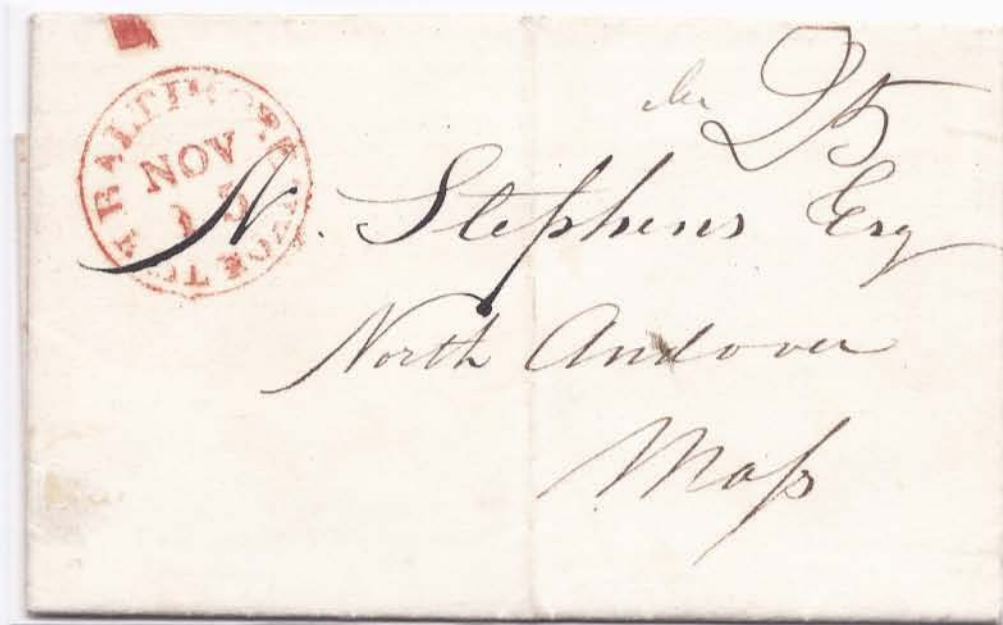 BALTIMORE
NOV
25
N. Stephens Esq
North Andover
Maſs